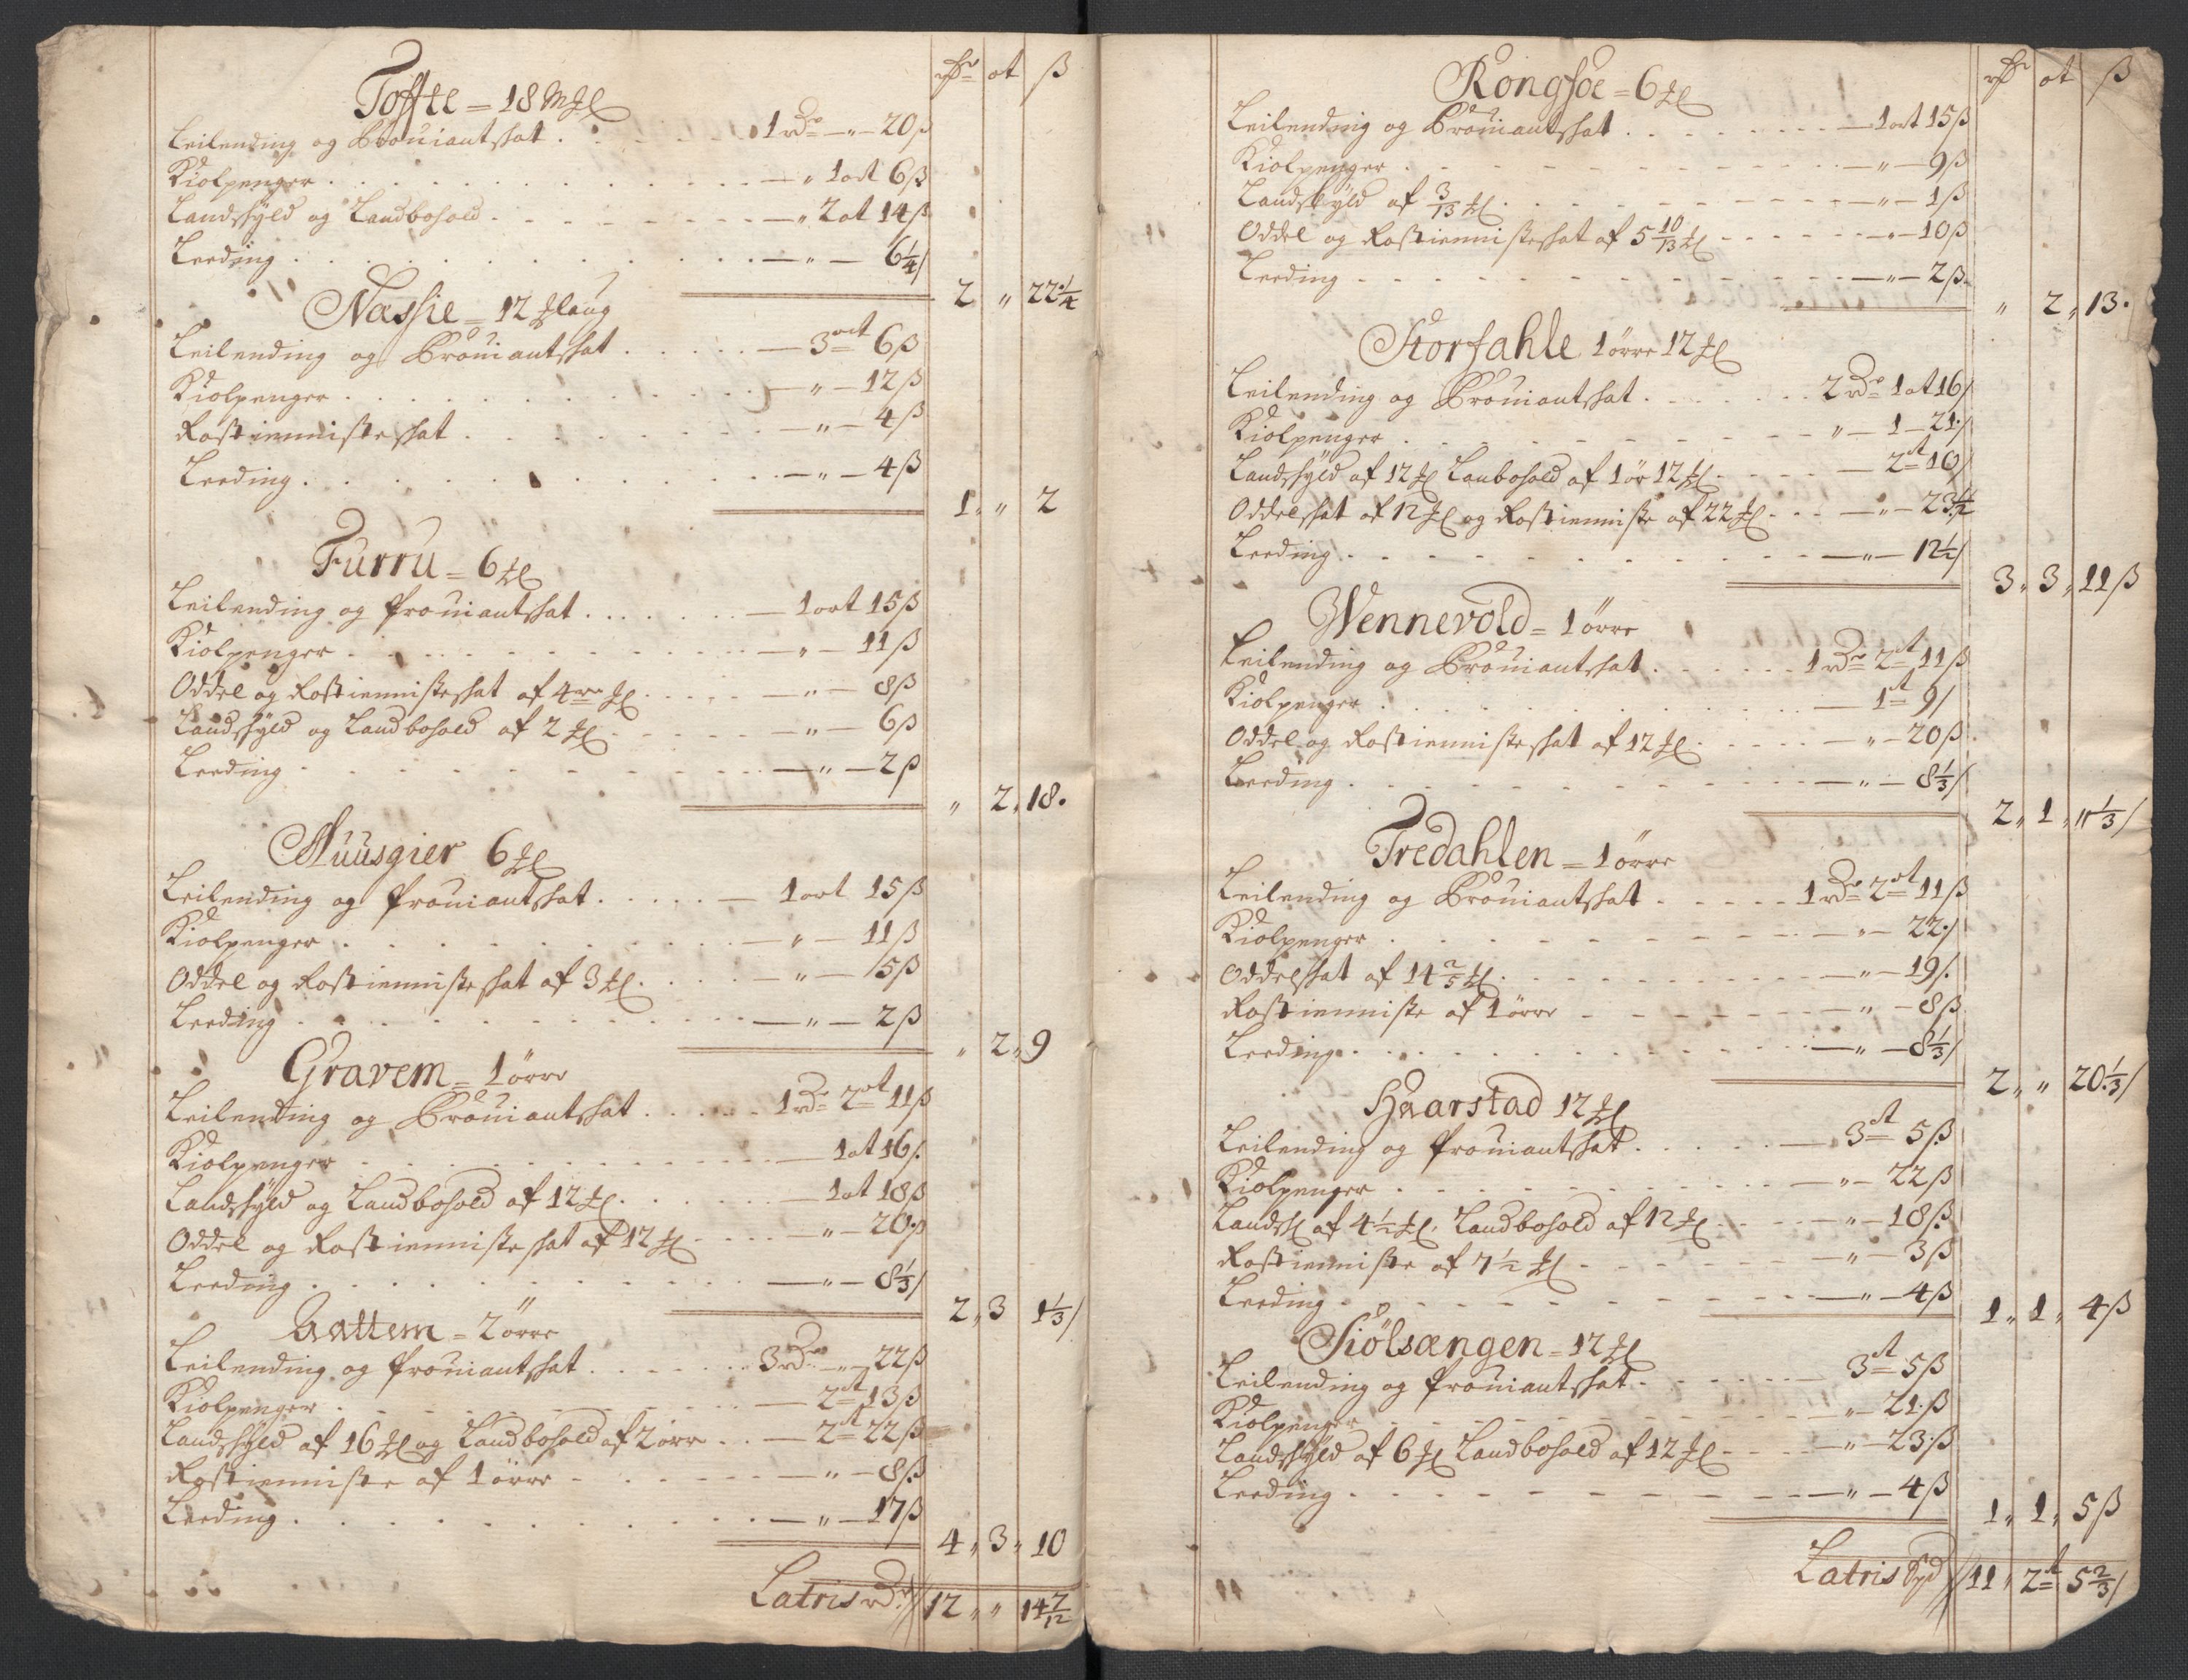 rdr ot ß
Toffte = 18 Mkl
Leilending og Proviantskat . . . . 1 rdr — " — 20 ß
Kiolpenger . . . . — " 1 ort 6 ß
Landskyld og Landbohold . . . . — " 2 ot 14 ß
Leeding . . . . — " — 6¼ /
2 " 22¼
Næssie = 12 klaug
Leilending og Proviantskat . . . . — 3 ort 6 ß
Kiolpenger . . . . — " — 12 ß
Rostienniste skat . . . . — " — 4 ß
Leeding . . . . — " — 4 ß
1 " " 2
Furru = 6 kl
Leilending og Proviantskat . . . . — 1 ort 15 ß
Kiolpenger . . . . — " — 11 ß
Oddel og Rostiennisteskat af 4re kl . . . . — " — 8 ß
Landskyld og Landbohold af 2 kl . . . . — " — 6 ß
Leeding . . . . — " — 2 ß
" 2 " 18.
Muusgier 6 kl
Leilending og Proviantskat . . . . — 1 ort 15 ß
Kiolpenger . . . . — " — 11 ß
Oddel og Rostiennisteskat af 3 kl . . . . — " — 5 ß
Leeding . . . . — " — 2 ß
" 2 " 9
Gravem = 1 ørre
Leilending og Proviantskat . . . . 1 rdr 2 ot 11 ß
Kiolpenger . . . . — 1 ot 16 /.
Landskyld og Landbohold af 12 kl . . . . — 1 ot 18 ß
Oddel og Rostienniste skat af 12 kl . . . . — " — 20 ß
Leeding . . . . — " — 8⅓ /
2 " 3 1⅓ /
Aattem = 2 ørre
Leilending og Proviantskat . . . . 3 rdr — " — 22 ß
Kiolpenger . . . . — 2 ot 13 ß
Landskyld af 16 kl og Landbohold af 2 ørr . . — 2 ot 22 ß
Rostienniste af 1 ørre . . . . — " — 8 ß
Leeding . . . . — " — 17 ß
4 " 3 " 10
Latris rdr 12 " " 14 7/12
rdr ot ß
Rongsoe = 6 kl
Leilending og Proviantskat . . . . — 1 ort 15 ß
Kiolpenger . . . . — " — 9 ß
Landskyld af 3/13 kl . . . . — " — 1 ß
Oddel og Rostiennisteskat af 5 10/13 kl . . . . — " — 10 ß
Leeding . . . . — " — 2 ß
" 2 " 13.
Storfahle 1 ørre 12 kl
Leilending og Proviantskat . . . . 2 rdr 1 ot 16 /
Kiolpenger . . . . " — 1 — 21 /
Landskyld af 12 kl Lanbohold af 1 ør 12 kl . . . . — 2 ot 10 /
Oddelskat af 12 kl og Rostienniste af 22 kl . . . — " — 23½
Leeding . . . . — " — 12½ /
3 " 3 " 11 ß
Wennevold = 1 ørre
Leilending og Proviantskat . . . . 1 rdr 2 ot 11 ß
Kiolpenger . . . . — 1 ot 9 /
Oddel og Rostiennisteskat af 12 kl . . . . — " — 20 ß
Leeding . . . . — " — 8⅓ /
2 " 1 " 11⅓ /
Tredahlen = 1 ørre
Leilending og Proviantskat . . . . 1 rdr 2 ot 11 ß
Kiolpenger . . . . — " — 22 /
Oddelskat af 14 2/5 kl . . . . — " — 19 /.
Rostienniste af 1 ørre . . . . — " — 8 ß
Leeding . . . . — " — 8⅓ /
2 " " 20⅓ /
Haarstad 12 kl
Leilending og Proviantskat . . . . — 3 ot 5 ß
Kiolpenger . . . . — " — 22 ß
Landsk af 4½ kl. Landbohold af 12 kl . . . . — " — 18 ß
Rostienniste af 7½ kl . . . . — " — 3 ß
Leeding . . . . — " — 4 ß
1 " 1 " 4 ß
Siölsængen = 12 kl
Leilending og Proviantskat . . . . — 3 ot 5 ß
Kiolpenger . . . . — " — 21 ß
Landskyld af 6 kl Landbohold af 12 kl . . . . — " — 23 ß
Leeding . . . . — " — 4 ß
1 " 1 " 5 ß
Latris 11 " 2 ot 5⅔ /